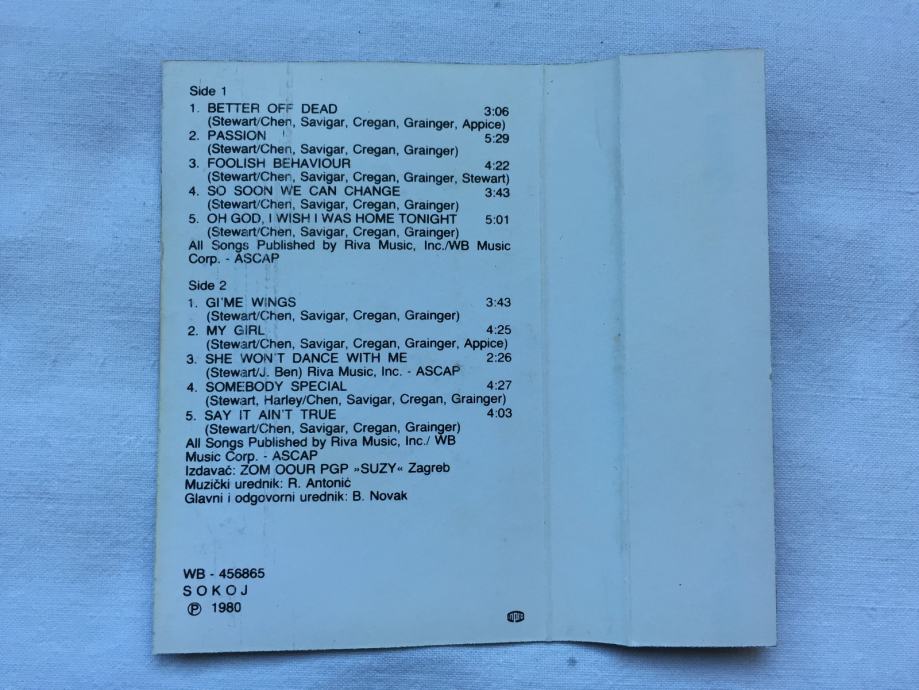 Side 1
1. BETTER OFF DEAD 3:06
(Stewart/Chen, Savigar, Cregan, Grainger, Appice)
2. PASSION 5:29
(Stewart/Chen, Savigar, Cregan, Grainger)
3. FOOLISH BEHAVIOUR 4:22
(Stewart/Chen, Savigar, Cregan, Grainger, Stewart)
4. SO SOON WE CAN CHANGE 3:43
(Stewart/Chen, Savigar, Cregan, Grainger)
5. OH GOD, I WISH I WAS HOME TONIGHT 5:01
(Stewart/Chen, Savigar, Cregan, Grainger)
All Songs Published by Riva Music, Inc./WB Music
Corp. - ASCAP
Side 2
1. GI'ME WINGS 3:43
(Stewart/Chen, Savigar, Cregan, Grainger)
2. MY GIRL 4:25
(Stewart/Chen, Savigar, Cregan, Grainger, Appice)
3. SHE WON'T DANCE WITH ME 2:26
(Stewart/J. Ben) Riva Music, Inc. - ASCAP
4. SOMEBODY SPECIAL 4:27
(Stewart, Harley/Chen, Savigar, Cregan, Grainger)
5. SAY IT AIN'T TRUE 4:03
(Stewart/Chen, Savigar, Cregan, Grainger)
All Songs Published by Riva Music, Inc./ WB
Music Corp. - ASCAP
Izdavač: ZOM OOUR PGP »SUZY« Zagreb
Muzički urednik: R. Antonić
Glavni i odgovorni urednik: B. Novak
WB - 456865
SOKOJ
Ⓟ 1980